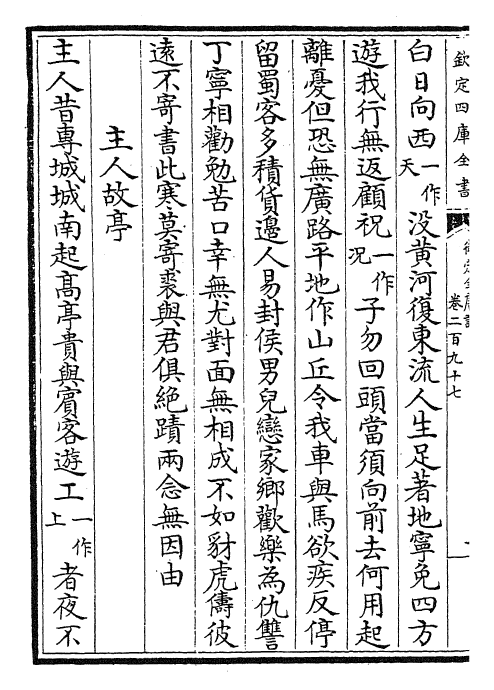 欽定四庫全書
卷二百九十七
白日向西一作天没黄河復東流人生足著地寧免四方
遊我行無返顧祝一作况子勿回頭當須向前去何用起
離憂但恐無廣路平地作山丘令我車與馬欲疾反停
留蜀客多積貨邊人易封侯男兒戀家鄉歡樂為仇讐
丁寧相勸勉苦口幸無尤對面無相成不如豺虎儔彼
逺不寄書此寒莫寄裘與君俱絶蹟兩念無因由
主人故亭
主人昔專城城南起髙亭貴與賓客遊工一作上者夜不